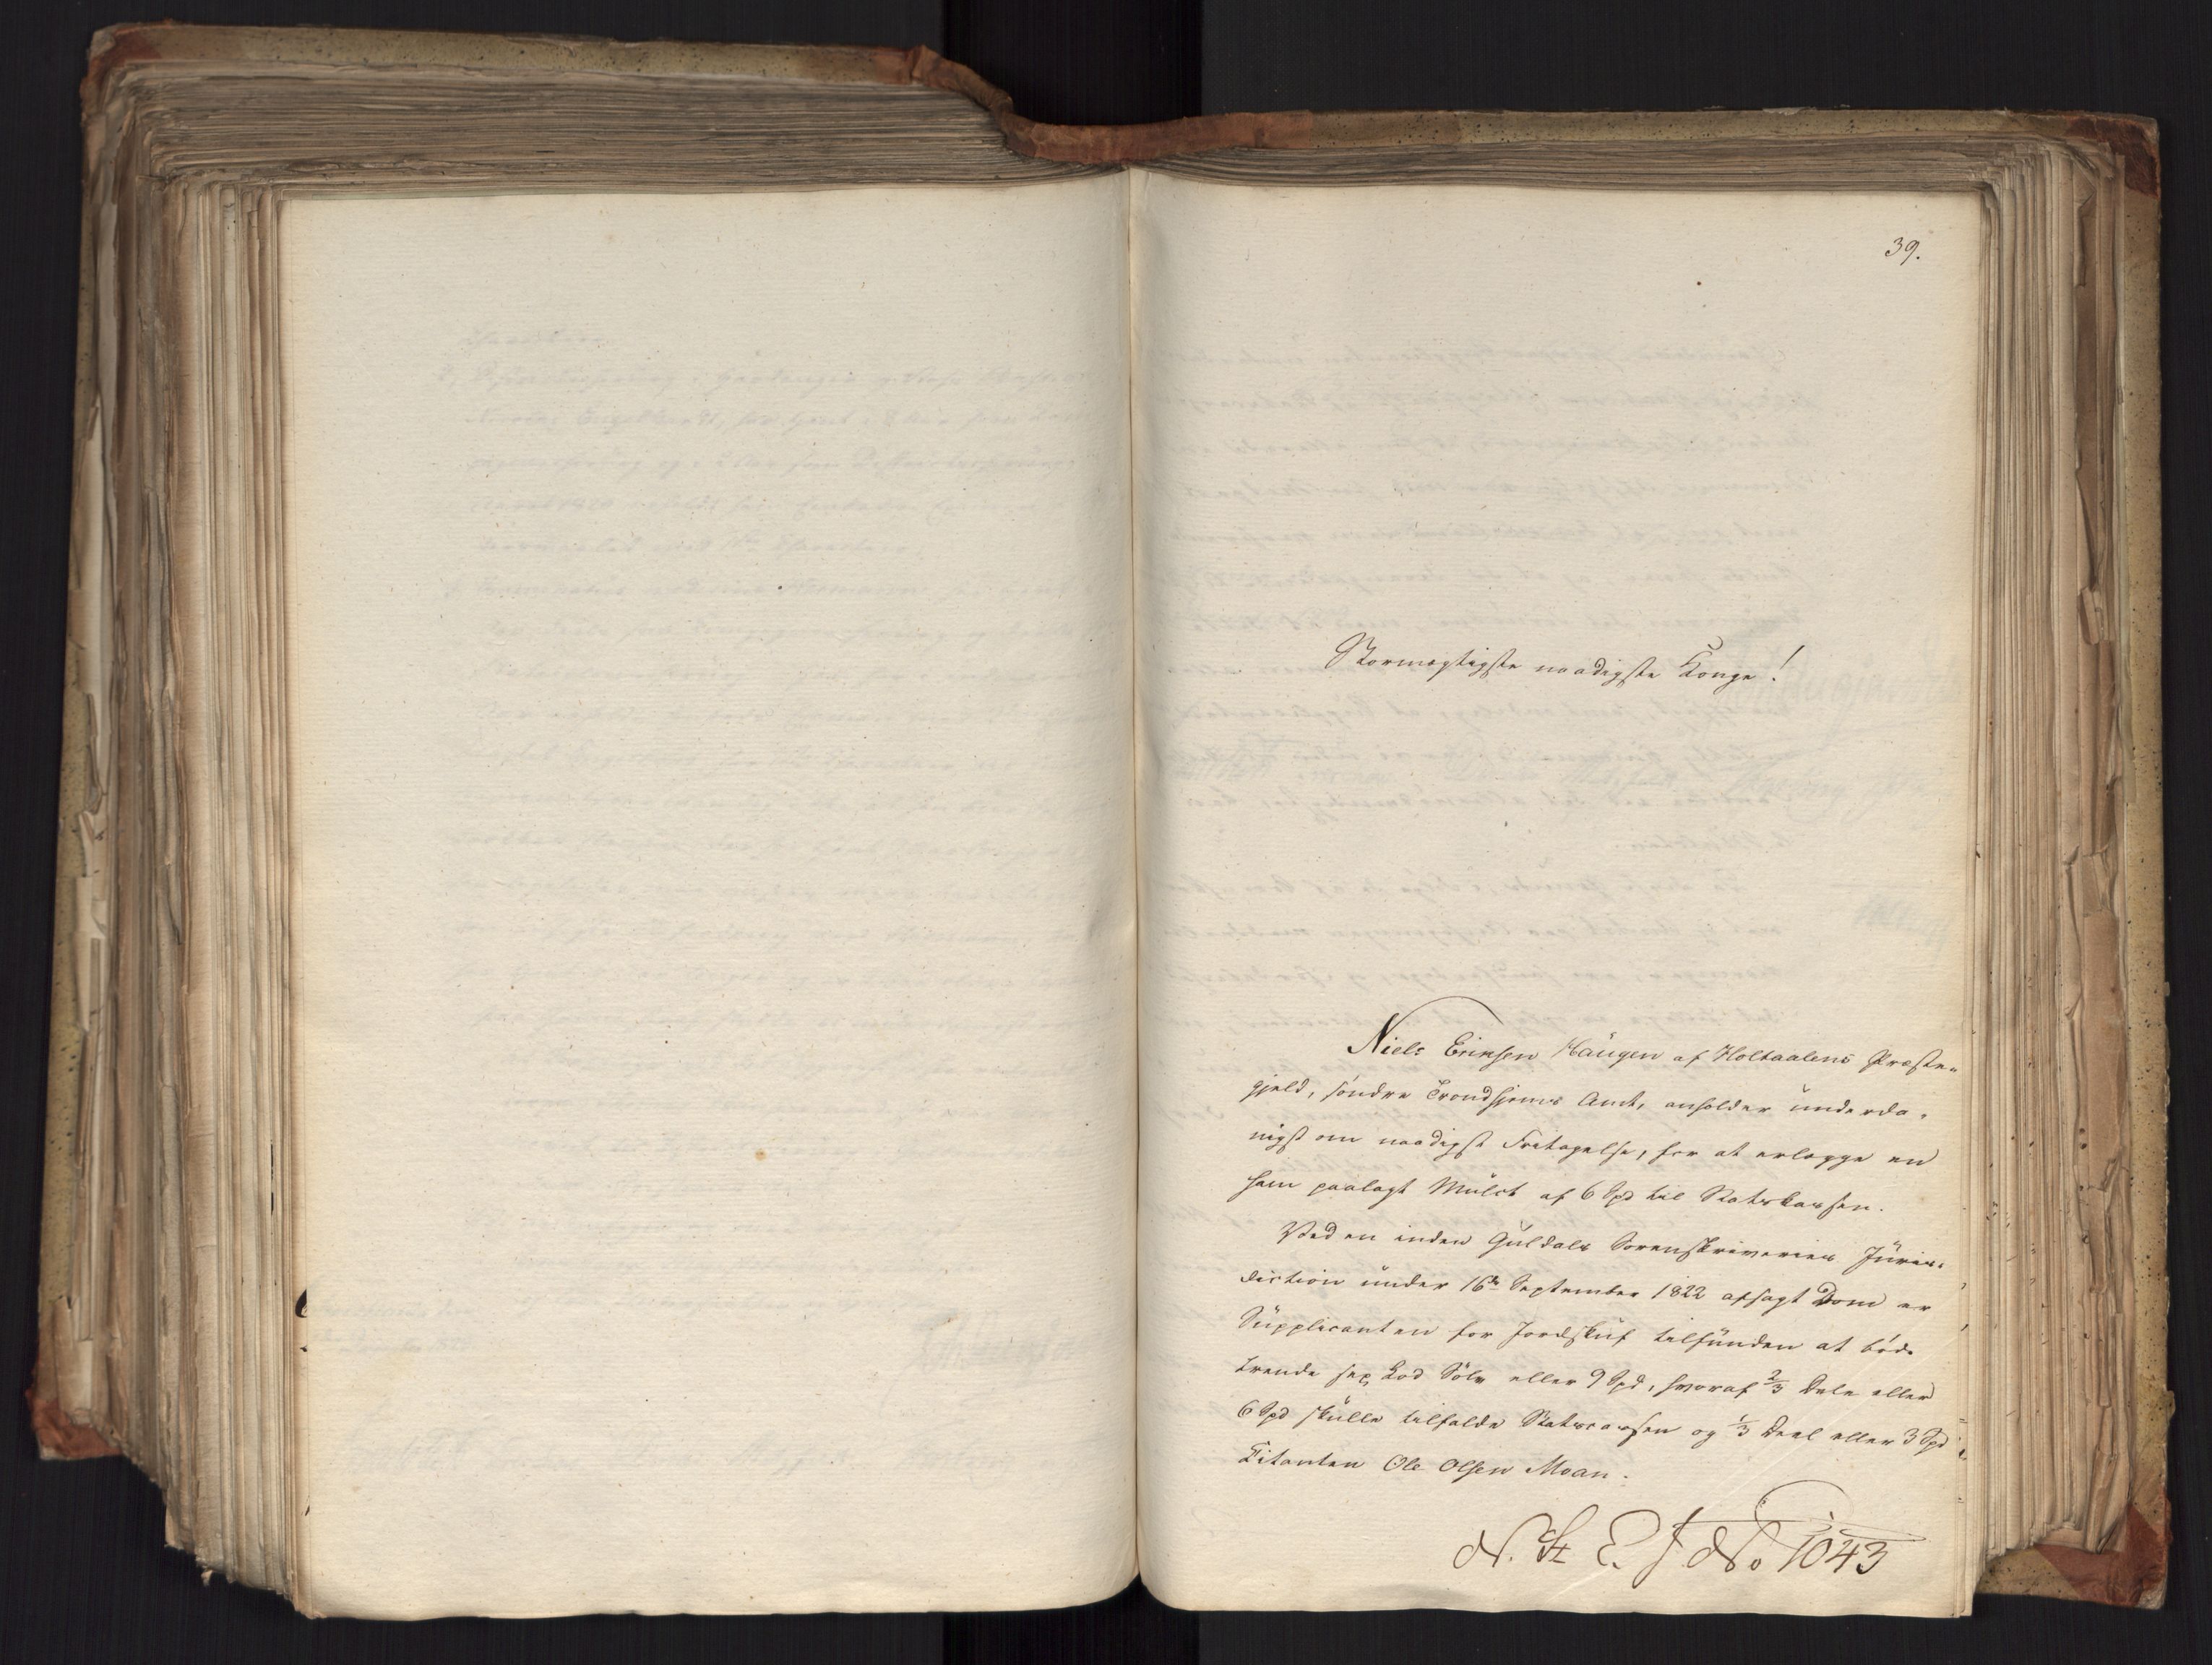 39.
Stormægtigste naadigste Konge!
Niels Erichsen Haugen af Holtaalens Præste-
gjeld, søndre Trondhjems Amt, anholder underda-
nigst om naadigst Fritagelse, for at erlægge en
ham paalagt Mulct af 6 Spd til Statskassen.
Ved en inden Guldals Sorenskriveries Juris-
diction under 16de September 1822 afsagt Dom er
Supplicanten for Jordskuf tilfunden at bøde
trende sex Lod Sølv eller 9 Spd, hvoraf 2/3 Dele eller
6 Spd skulle tilfalde Statscassen og 1/3 Deel eller 3 Spd
Citanten Ole Olsen Moan.
N. St. E. J. No 1043